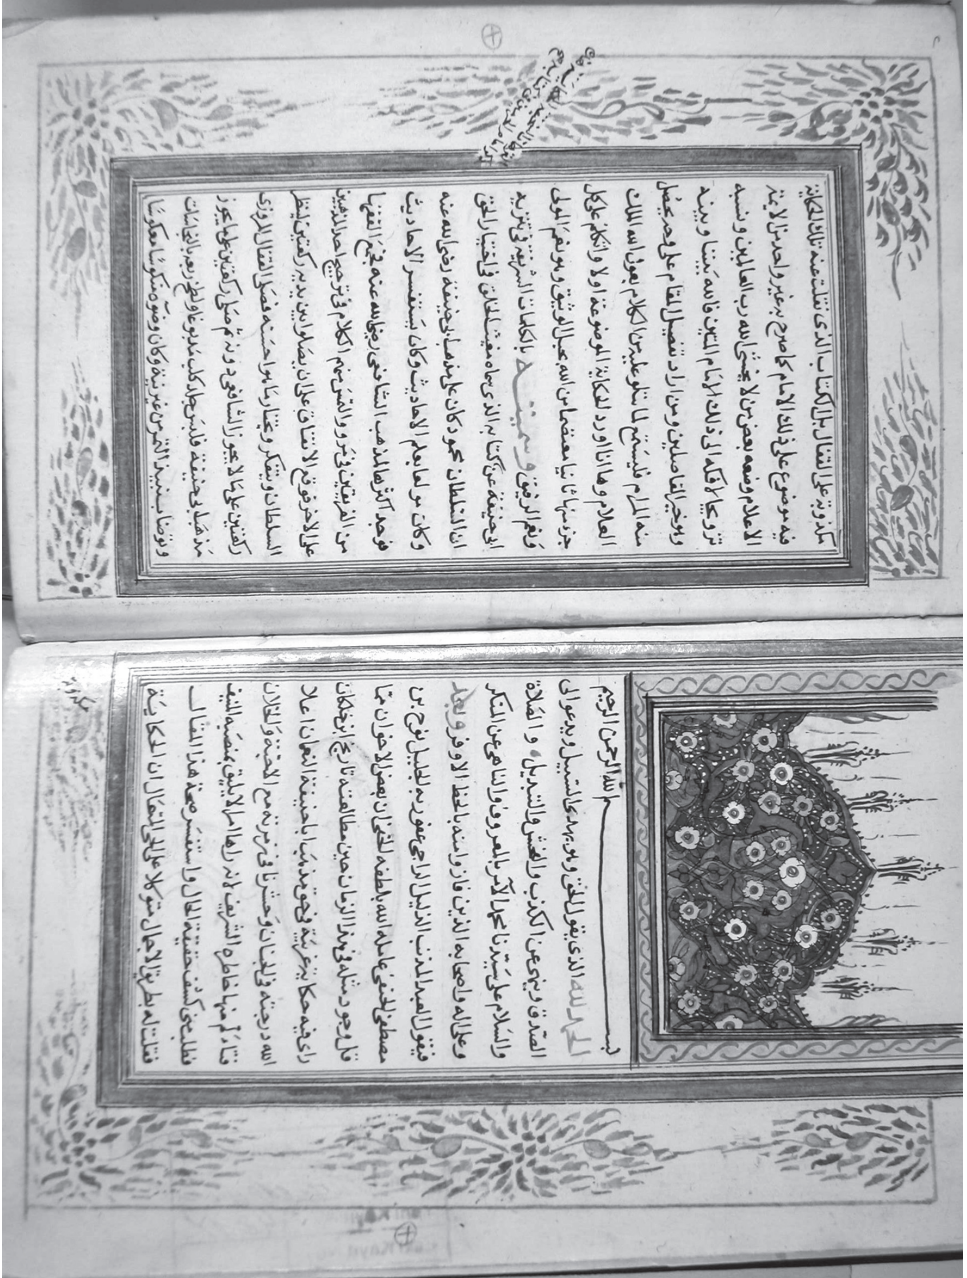 بسم الله الرحمن الرحيم
الحمد لله الذى يقول الحق وهو يهدى الى السبيل ويدعو الى
الصدق وينهى عن الكذب والغش والتبديل، والصلاة
والسلام على سيدنا محمد الآمر بالمعروف والناهى عن المنكر
وعلى اله واصحابه الذين فازوا منه بالحظ الاوفر وبعد
فيقول العبد المذنب الذليل الراجى عفو ربه الجليل نوح بن
مصطفى الحنفى عامله الله بلطفه الخفى ان بعض الاخوان ممن
قل وجود مثله فى هذا الزمان حين مطالعته تاريخ ابن خلكان
راى فيه حكاية غريبة فى حق مذهب ابا حنيفة النعمان اعلا
الله درجته فى الجنان وحشرنا فى زمرته مع الاحبة والخلان
فتالم منها خاطره الشريف لانه راها امرا لا يليق بمنصبه المنيف
فطلب منى كشف حقيقة الحال واستفسر صحة هذا المقال
فقلت له بطريق الاجمال متوكلا على المتعال ان الحكاية
مكذوبة
مكذوبة على القفال بل الكتاب الذى نقلت عنه تلك الحكاية
فيه موضوع على ذلك الامام كما صرح به غير واحد من الائمة
الاعلام وضعه بعض من لا يخشى الله رب العالمين ونسبه
ترويجا لافكه الى ذلك الامام المتين فالله بيننا وبينه
وهو خير الفاصلين ومن اراد تفصيل المقام على وجه يحصل
منه المرام فليستمع لما نتلو عليه من الكلام بعون الله الملك
العلام وها انا اورد الحكاية الموضوعة اولا واتكلم على كل
جزء منها ثانيا معتصما من الله بحبل الوثيق وهو نعم المولى
ونعم الرفيق وسميته بالكلمات الشريفة فى تنزيه
ابى حنيفة عن كتابه الذى سماه مغيث الخلق فى اختيار الحق
ان السلطان محمود كان على مذهب ابى حنيفة رضى الله عنه
وكان مولعا بعلم الاحاديث وكان يستفسر الاحاديث
فوجد اكثرها لمذهب الشافعى رضى الله عنه فجمع الفقهاء
من الفريقين فى مرو والتمس منهم الكلام فى ترجيح احد المذهبين
على الاخر فوقع الاتفاق على ان يصلوا بين يديه ركعتين لينظر
السلطان ويتفكر ويختار ما هو احسنه فصلى القفال المروزى
ركعتين على ما لا يجوز الشافعى دونه ثم صلى ركعتين على ما يجوز
مذهب ابى حنيفة فلبس جلد كلب مدبوغا ولطخ ربعه بالنجاسات
وتوضا بنبيذ التمر من غير نية وكان وضوءه منكوسا معكوسا